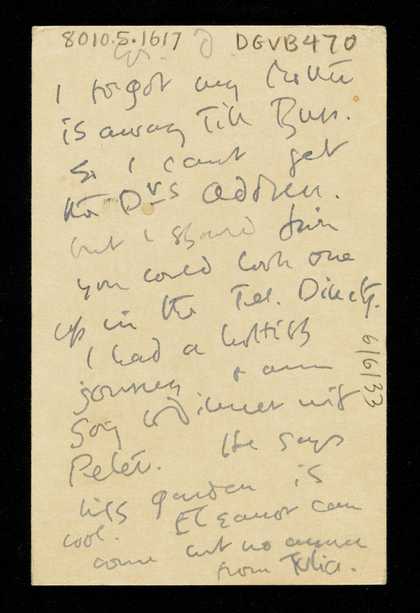 8010.5.1617 DGVB470
I forgot my
is away Till Thurs.
So I cant get
the Drs Address.
but I should think
you could look one
up in the Tel. Directy.
I had a hottish
journey & am
going to dinner with
Peter. He says
his garden is
cool. Eleanor can
come but no answer
from Julia.
6/6/33